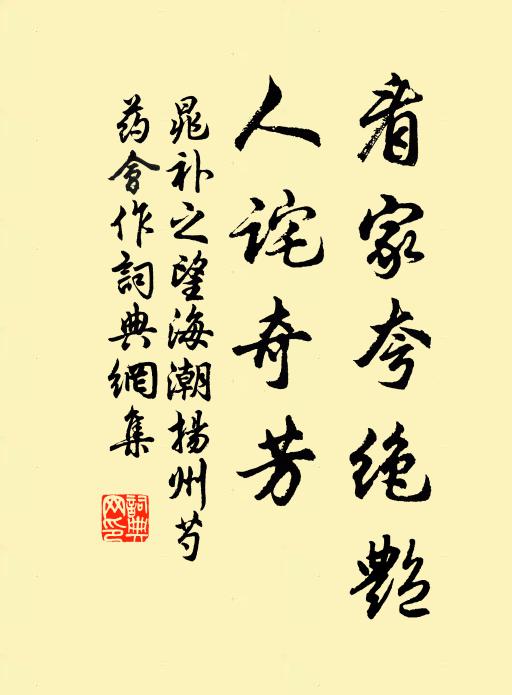 看家夸绝艳
人诧奇芳
晁补之望海潮扬州芍
药会作词典网集
词典网印